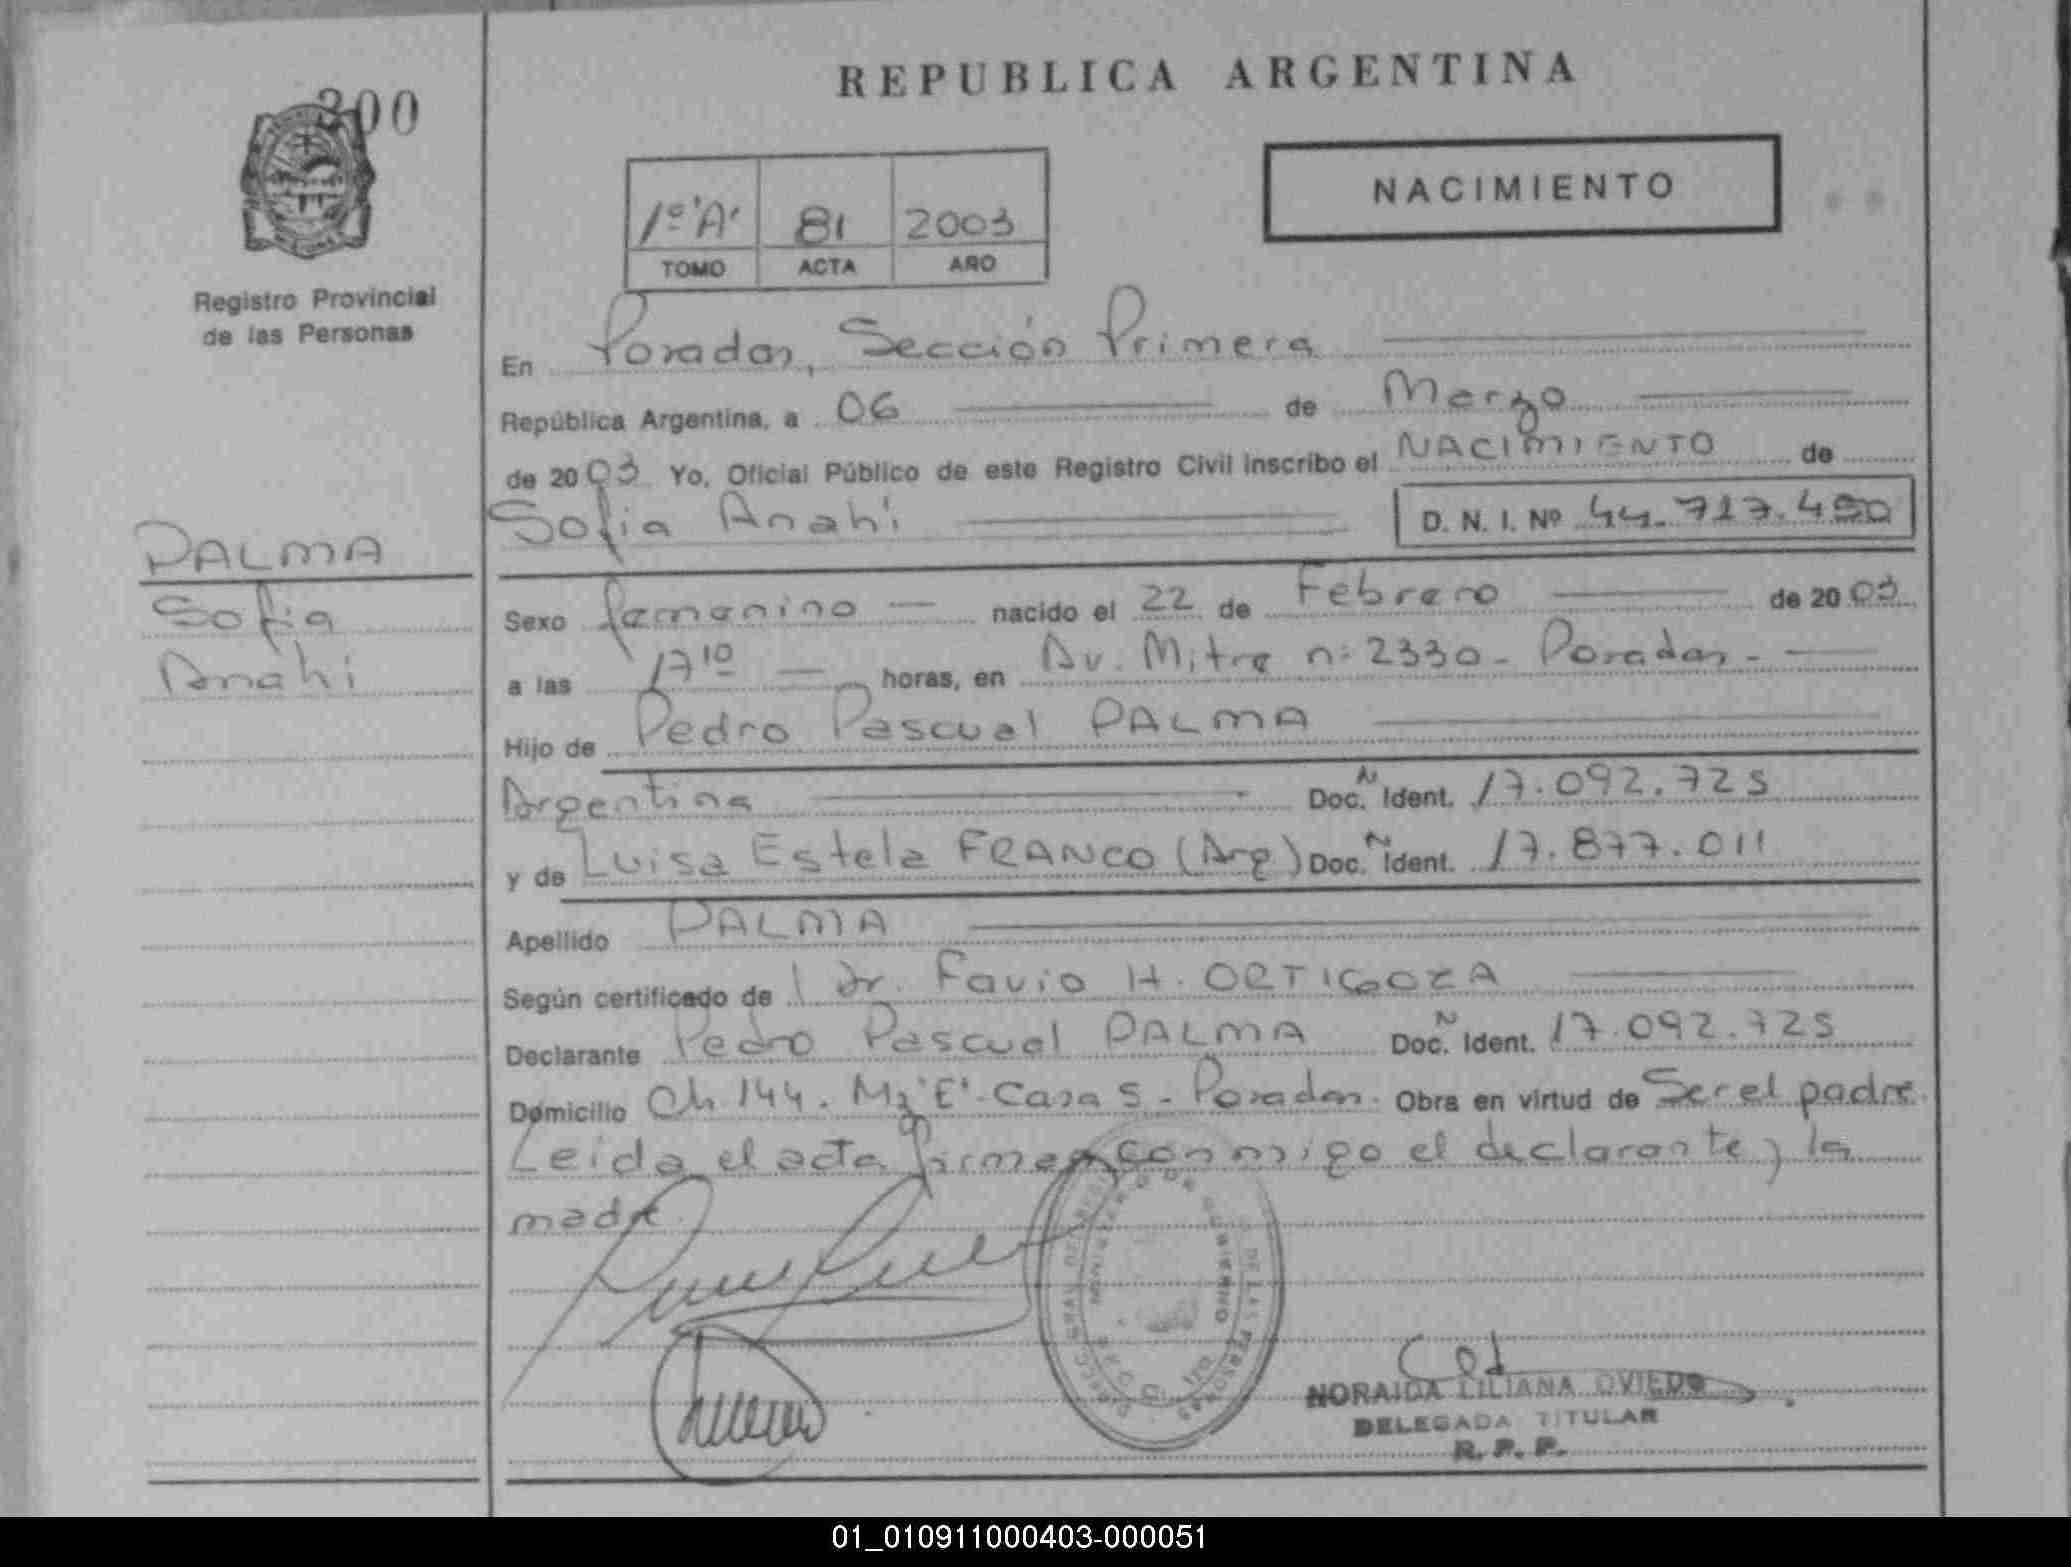 REPUBLICA ARGENTINA
300
NACIMIENTO
1º 'A' 81 2003
TOMO ACTA AÑO
Registro Provincial
de las Personas
En Posadas, Sección Primera
República Argentina, a 06 de Marzo
de 2003 Yo, Oficial Público de este Registro Civil inscribo el NACIMIENTO de
Sofia Anahi D. N. I. Nº 44.717.490
PALMA
Sofia
Anahi
Sexo femenino nacido el 22 de Febrero de 2003
a las 17 10 horas, en Av. Mitre nº 2330 - Posadas -
Hijo de Pedro Pascual PALMA
Argentina Doc. N Ident. 17.092.725
y de Luisa Estela FRANCO (Arg) Doc. N Ident. 17.877.011
Apellido PALMA
Según certificado de Dr. Favio H. ORTIGOZA
Declarante Pedro Pascual PALMA Doc. N Ident. 17.092.725
Domicilio Ch 144. Mz 'E' - Casa 5 - Posadas. Obra en virtud de Ser el padre.
Leida el acta firman conmigo el declarante y la
madre.
MINISTERIO DE GOBIERNO
DE LAS PERSONAS
NORAIDA LILIANA OVIEDO
DELEGADA TITULAR
R. P. P.
01_010911000403-000051